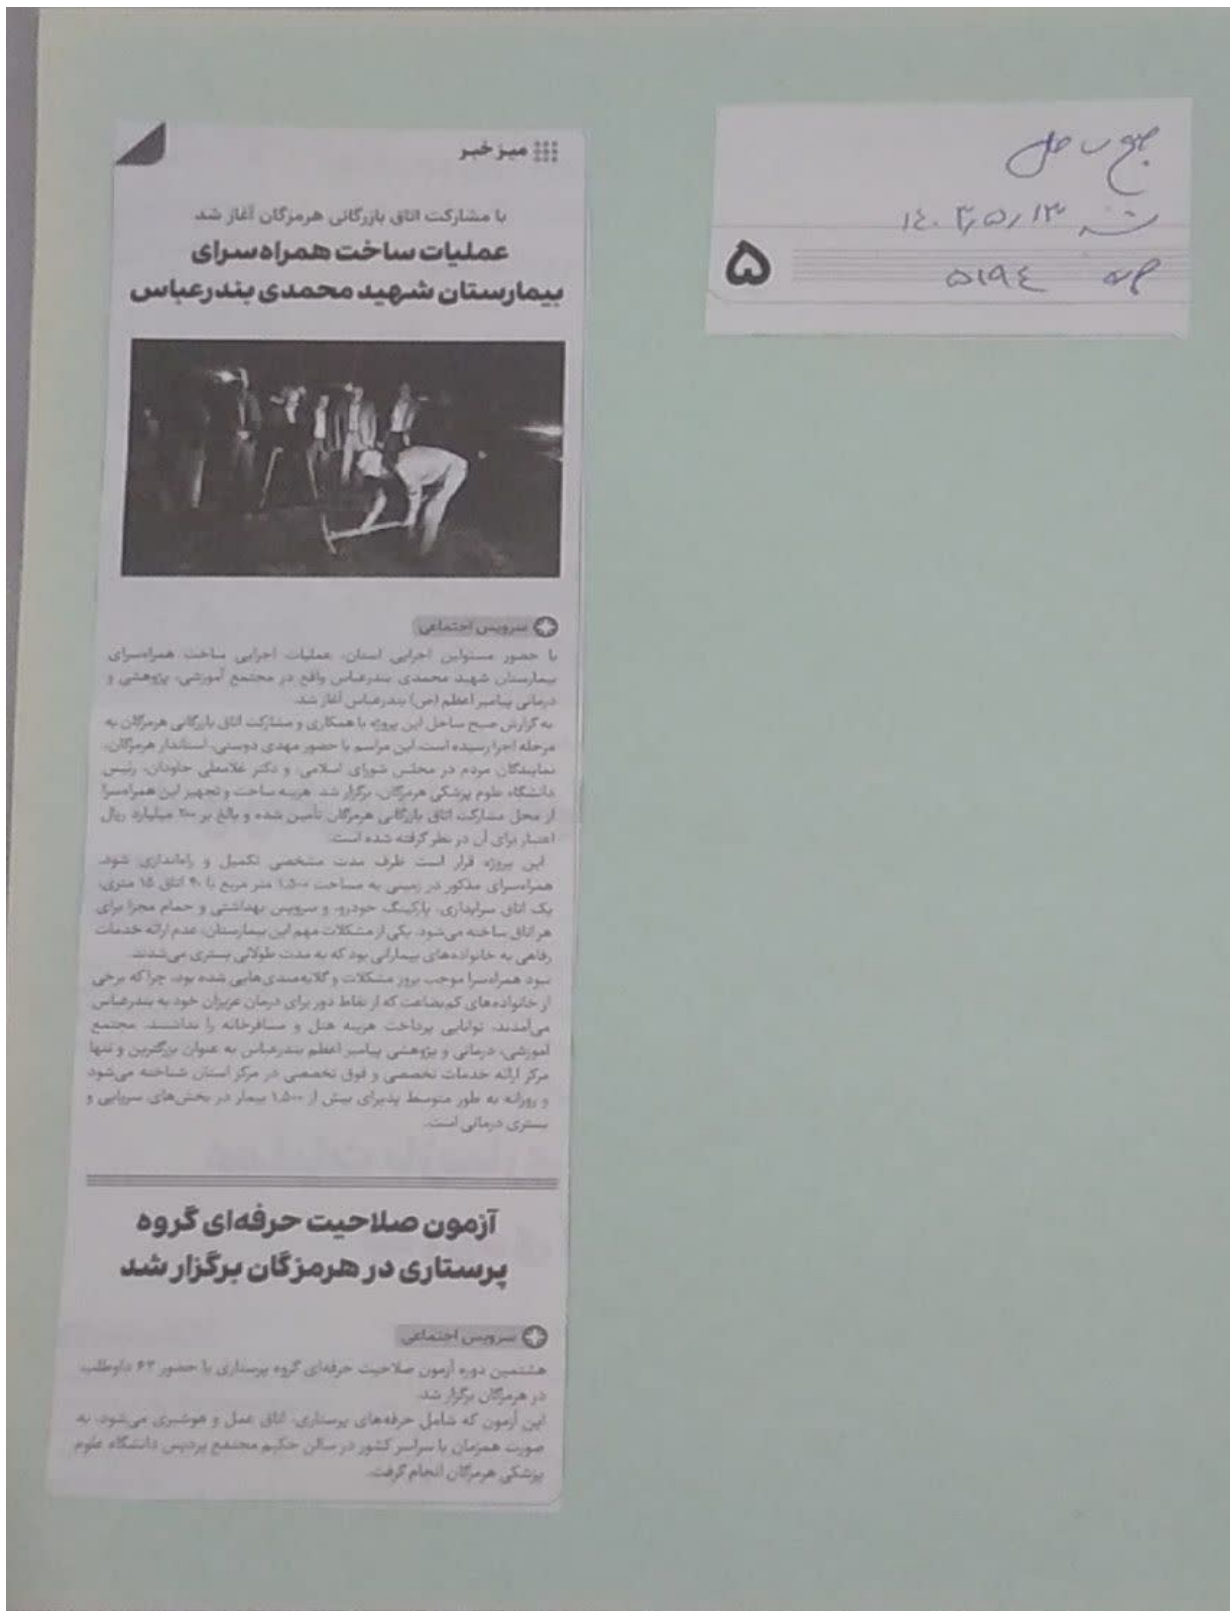 میز خبر
با مشارکت اتاق بازرگانی هرمزگان آغاز شد
عملیات ساخت همراه‌سرای
بیمارستان شهید محمدی بندرعباس
سرویس اجتماعی
با حضور مسئولین اجرایی استان، عملیات اجرایی ساخت همراه‌سرای
بیمارستان شهید محمدی بندرعباس واقع در مجتمع آموزشی، پژوهشی و
درمانی پیامبر اعظم (ص) بندرعباس آغاز شد.
به گزارش صبح ساحل این پروژه با همکاری و مشارکت اتاق بازرگانی هرمزگان به
مرحله اجرا رسیده است. این مراسم با حضور مهدی دوستی، استاندار هرمزگان،
نمایندگان مردم در مجلس شورای اسلامی، و دکتر غلامعلی جاودان، رئیس
دانشگاه علوم پزشکی هرمزگان، برگزار شد. هزینه ساخت و تجهیز این همراه‌سرا
از محل مشارکت اتاق بازرگانی هرمزگان تأمین شده و بالغ بر میلیارد ریال
اعتبار برای آن در نظر گرفته شده است.
این پروژه قرار است ظرف مدت مشخصی تکمیل و راه‌اندازی شود.
همراه‌سرای مذکور در زمینی به مساحت ۱،۵۰۰ متر مربع با اتاق ۱۵ متری،
یک اتاق سرایداری، پارکینگ خودرو، و سرویس بهداشتی و حمام مجزا برای
هر اتاق ساخته می‌شود. یکی از مشکلات مهم این بیمارستان، عدم ارائه خدمات
رفاهی به خانواده‌های بیمارانی بود که به مدت طولانی بستری می‌شدند.
نبود همراه‌سرا موجب بروز مشکلات و گلایه‌مندی‌هایی شده بود، چرا که برخی
از خانواده‌های کم‌بضاعت که از نقاط دور برای درمان عزیزان خود به بندرعباس
می‌آمدند، توانایی پرداخت هزینه هتل و مسافرخانه را نداشتند. مجتمع
آموزشی، درمانی و پژوهشی پیامبر اعظم بندرعباس به عنوان بزرگترین و تنها
مرکز ارائه خدمات تخصصی و فوق تخصصی در مرکز استان شناخته می‌شود
و روزانه به طور متوسط پذیرای بیش از ۱،۵۰۰ بیمار در بخش‌های سرپایی و
بستری درمانی است.
آزمون صلاحیت حرفه‌ای گروه
پرستاری در هرمزگان برگزار شد
سرویس اجتماعی
هشتمین دوره آزمون صلاحیت حرفه‌ای گروه پرستاری با حضور ۶۳ داوطلب
در هرمزگان برگزار شد.
این آزمون که شامل حرفه‌های پرستاری، اتاق عمل و هوشبری می‌شود، به
صورت همزمان با سراسر کشور در سالن حکیم مجتمع پردیس دانشگاه علوم
پزشکی هرمزگان انجام گرفت.
صبح ساحل
۱۴۰۳/۵/۱۳
۵۱۹۴
۵